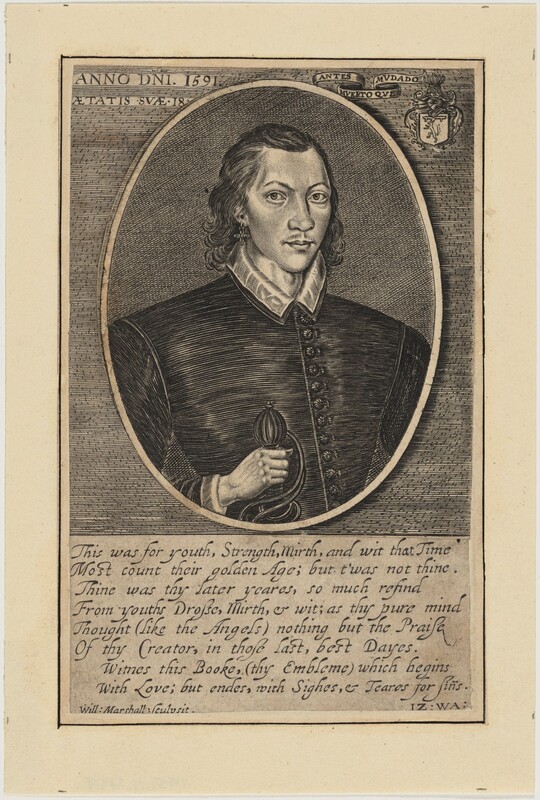 ANNO DNI. 1591.
ÆTATIS SVÆ. 18.
ANTES MVDADO
MVERTO QVE
This was for youth, Strength, Mirth, and wit that Time
Most count their golden Age; but t'was not thine.
Thine was thy later yeares, so much refind
From youths Drosse, Mirth, & wit; as thy pure mind
Thought (like the Angels) nothing but the Praise
Of thy Creator, in those last, best Dayes.
Witnes this Booke, (thy Embleme) which begins
With Love; but endes, with Sighes, & Teares for sins.
Will: Marshall: sculpsit.
IZ: WA: